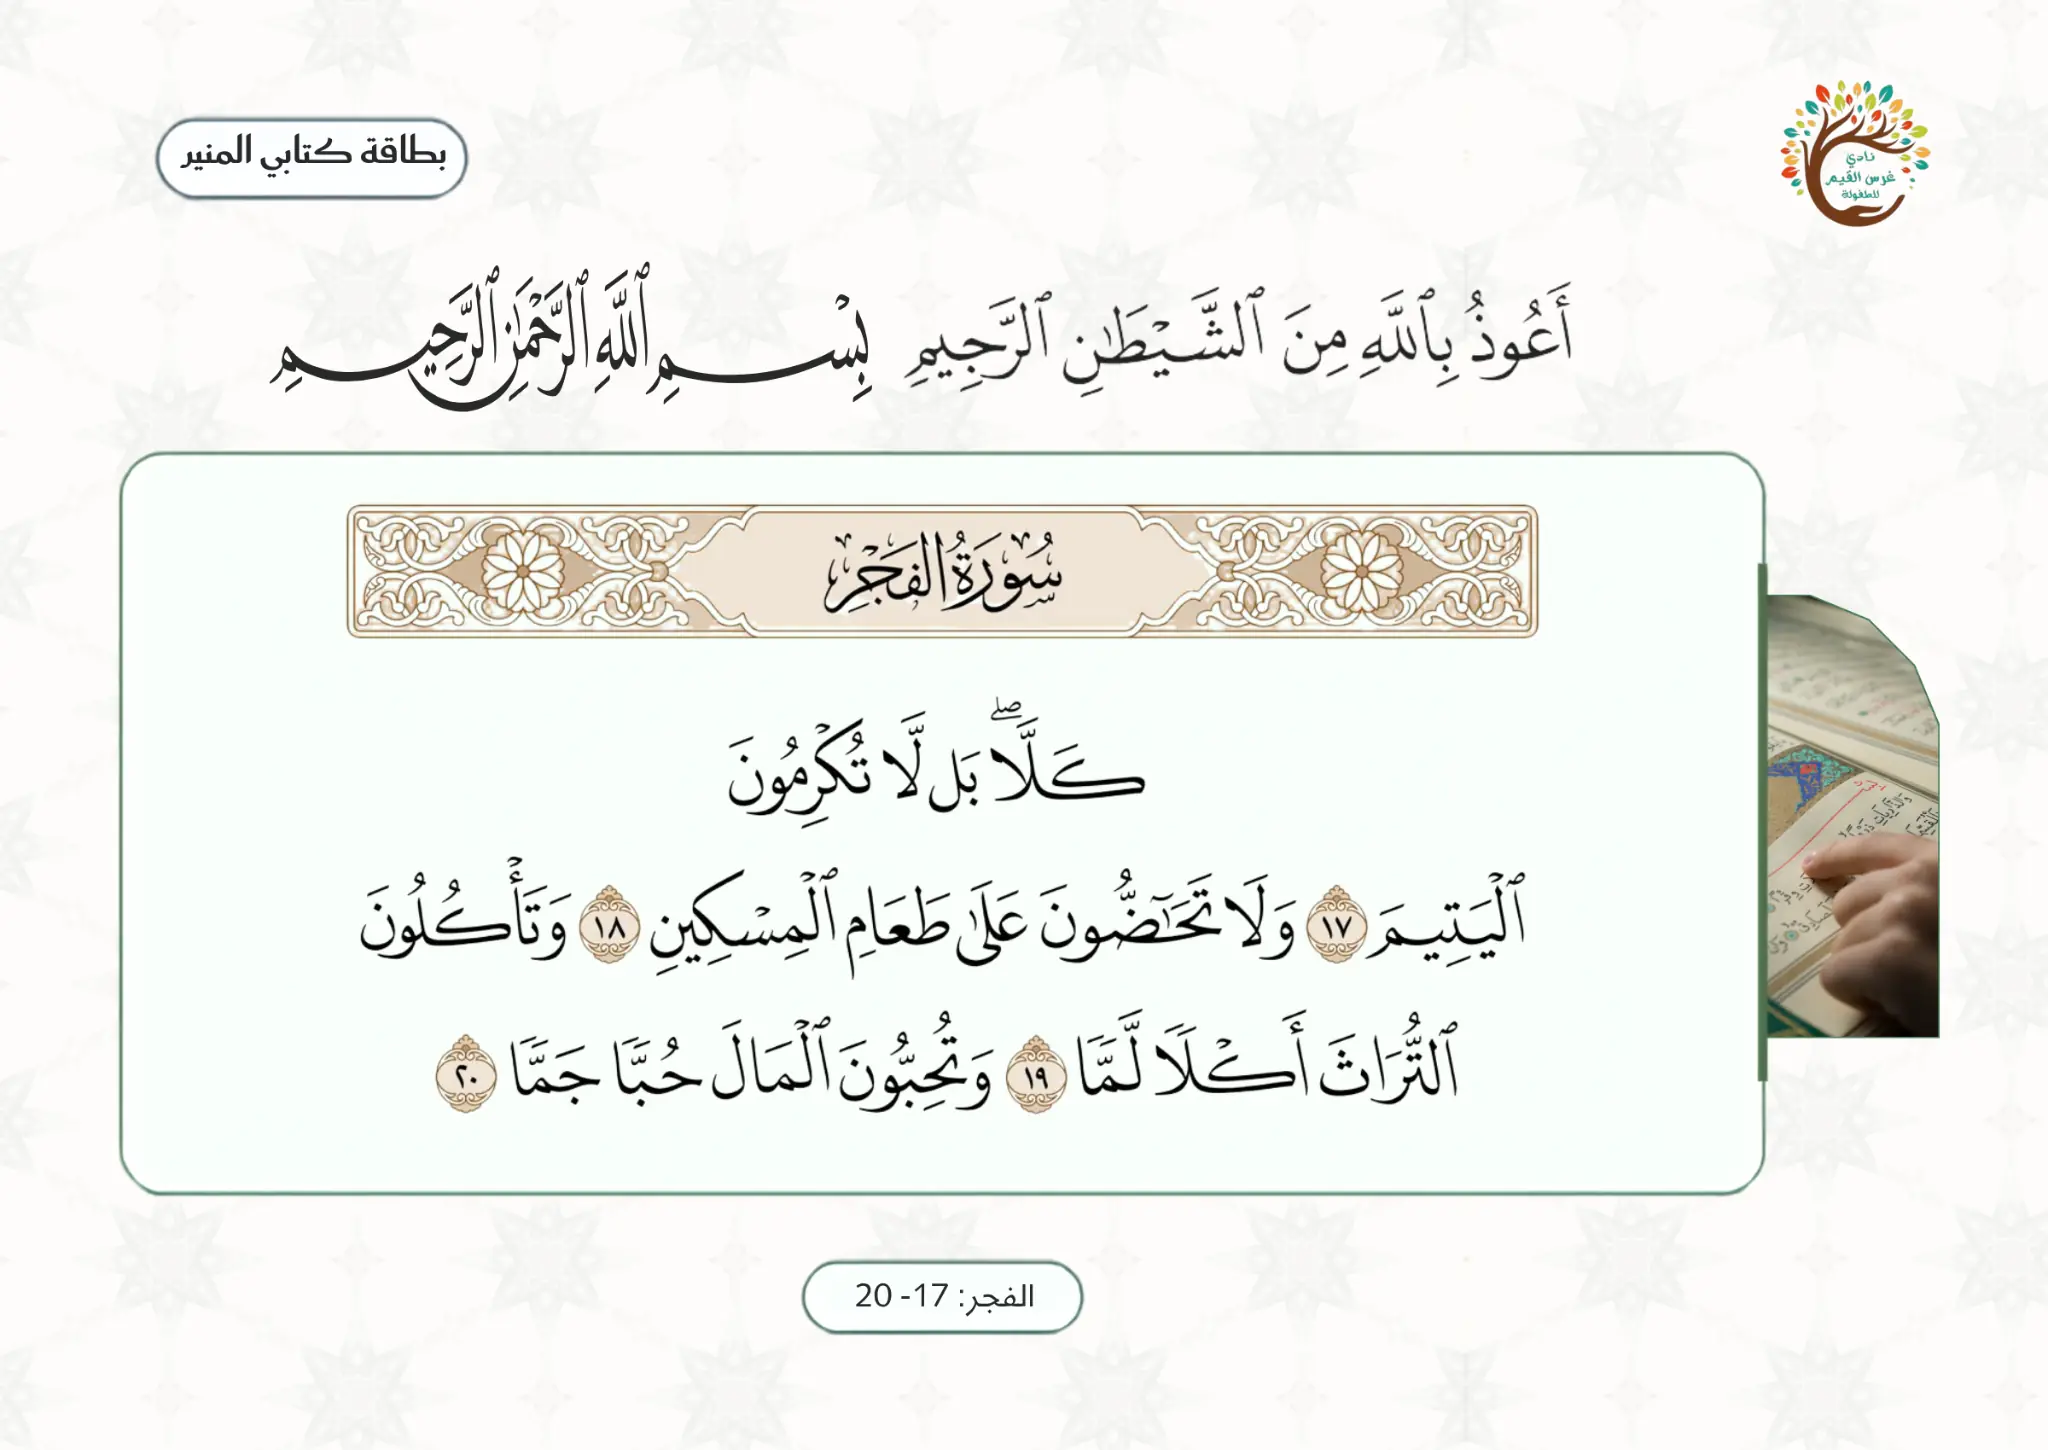 بطاقة كتابي المنير
نادي
غرس القيم
للطفولة
أَعُوذُ بِٱللَّهِ مِنَ ٱلشَّيْطَٰنِ ٱلرَّجِيمِ بِسْمِ ٱللَّهِ ٱلرَّحْمَٰنِ ٱلرَّحِيمِ
سُورَةُ الفَجْرِ
كَلَّاۖ بَل لَّا تُكْرِمُونَ
ٱلْيَتِيمَ ١٧ وَلَا تَحَٰٓضُّونَ عَلَىٰ طَعَامِ ٱلْمِسْكِينِ ١٨ وَتَأْكُلُونَ
ٱلتُّرَاثَ أَكْلًا لَّمًّا ١٩ وَتُحِبُّونَ ٱلْمَالَ حُبًّا جَمًّا ٢٠
الفجر: 17- 20